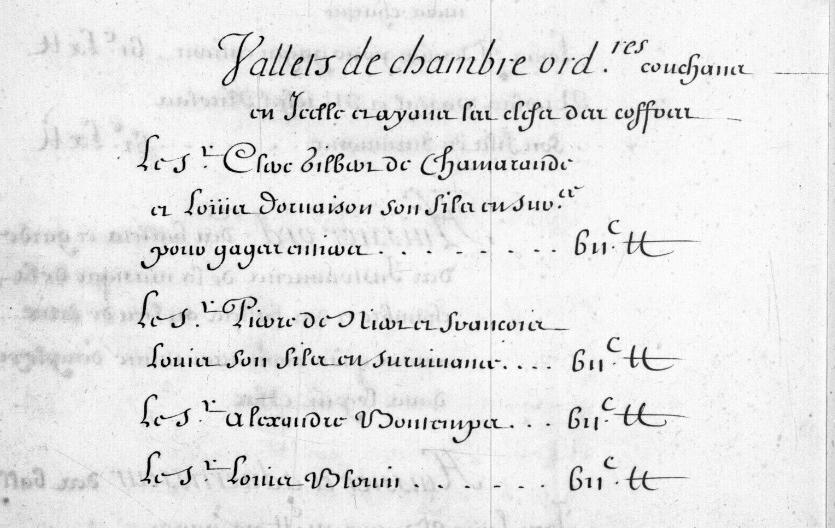 Vallets de chambre ord.res couchans
en Icelle et ayans les clefs des coffres
Le Sr. Clair Gilbert de Chamarande
et Louis Dornaison son fils en surv.ce
pour gages entiers . . . . . . . . vii.C ₶
Le Sr. Pierre de Niert et Francois
Louis son fils en survivance. . . . vii.C ₶
Le Sr. Alexandre Bontemps . . . vii.C ₶
Le Sr. Louis Blouin . . . . . . vii.C ₶